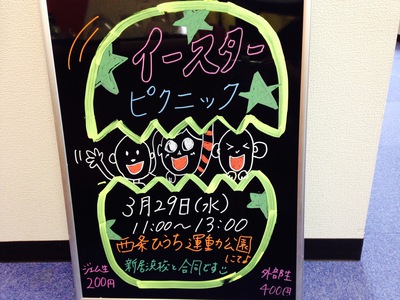 イースター
ピクニック
3月29日(水)
11:00〜13:00
西条ひうち運動公園
にてよ
新居浜校と合同です
ジェム生
200円
外部生
400円